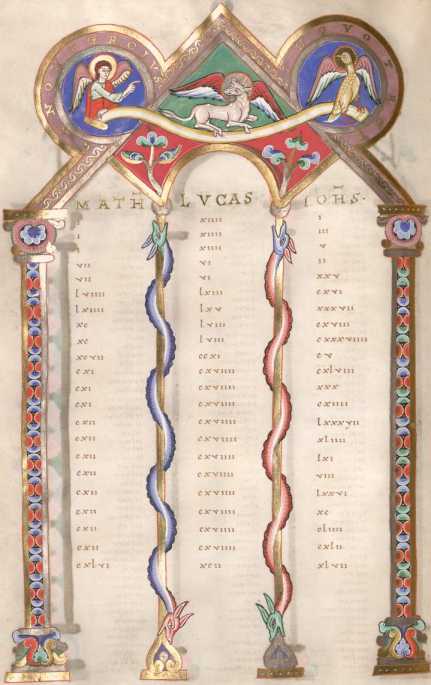 MATH LVCAS IOHS
i xiiii i
i xiiii iii
i xiiii v
vii vi ii
vii vi xxv
lviiii lxiii cxvi
lxiiii lxv xxxvii
xc lviii cxviii
xc lviii cxxxviiii
xcvii ccxi cv
cxi cxviiii cxlviii
cxi cxviiii xxx
cxi cxviiii cxiiii
cxii cxviiii lxxxvii
cxii cxviiii xliiii
cxii cxviiii lxi
cxii cxviiii viii
cxii cxviiii lxxvi
cxii cxviiii xc
cxii cxviiii cliiii
cxii cxviiii cxlii
cxlvi xcii xlvii